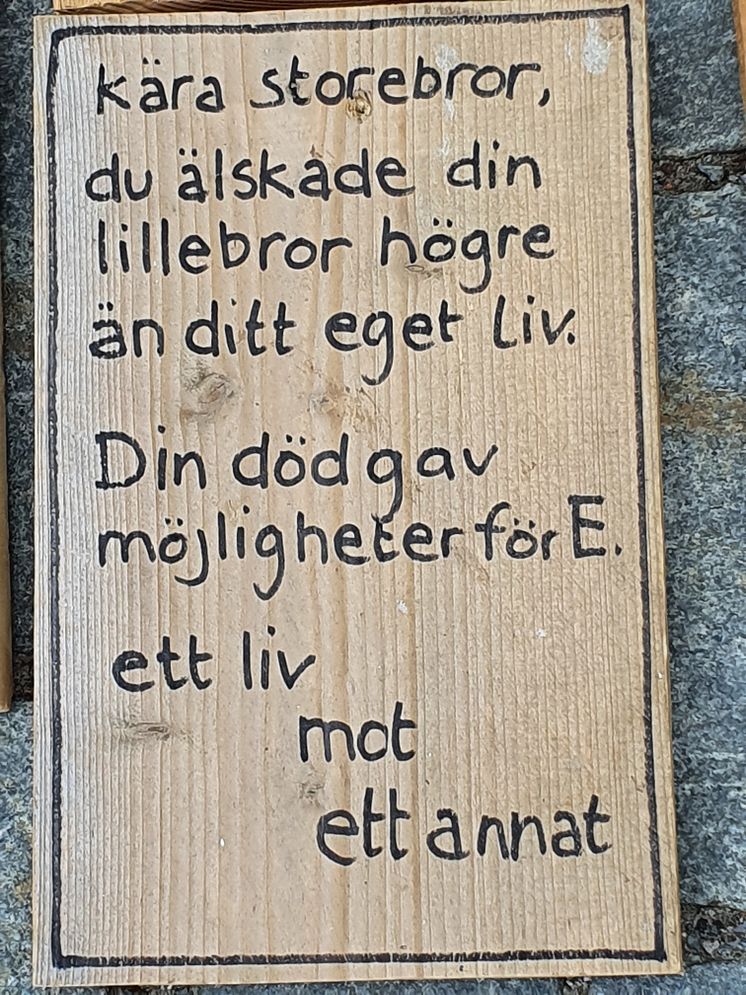 kära storebror,
du älskade din
lillebror högre
än ditt eget liv.
Din död gav
möjligheter för E.
ett liv
mot
ett annat